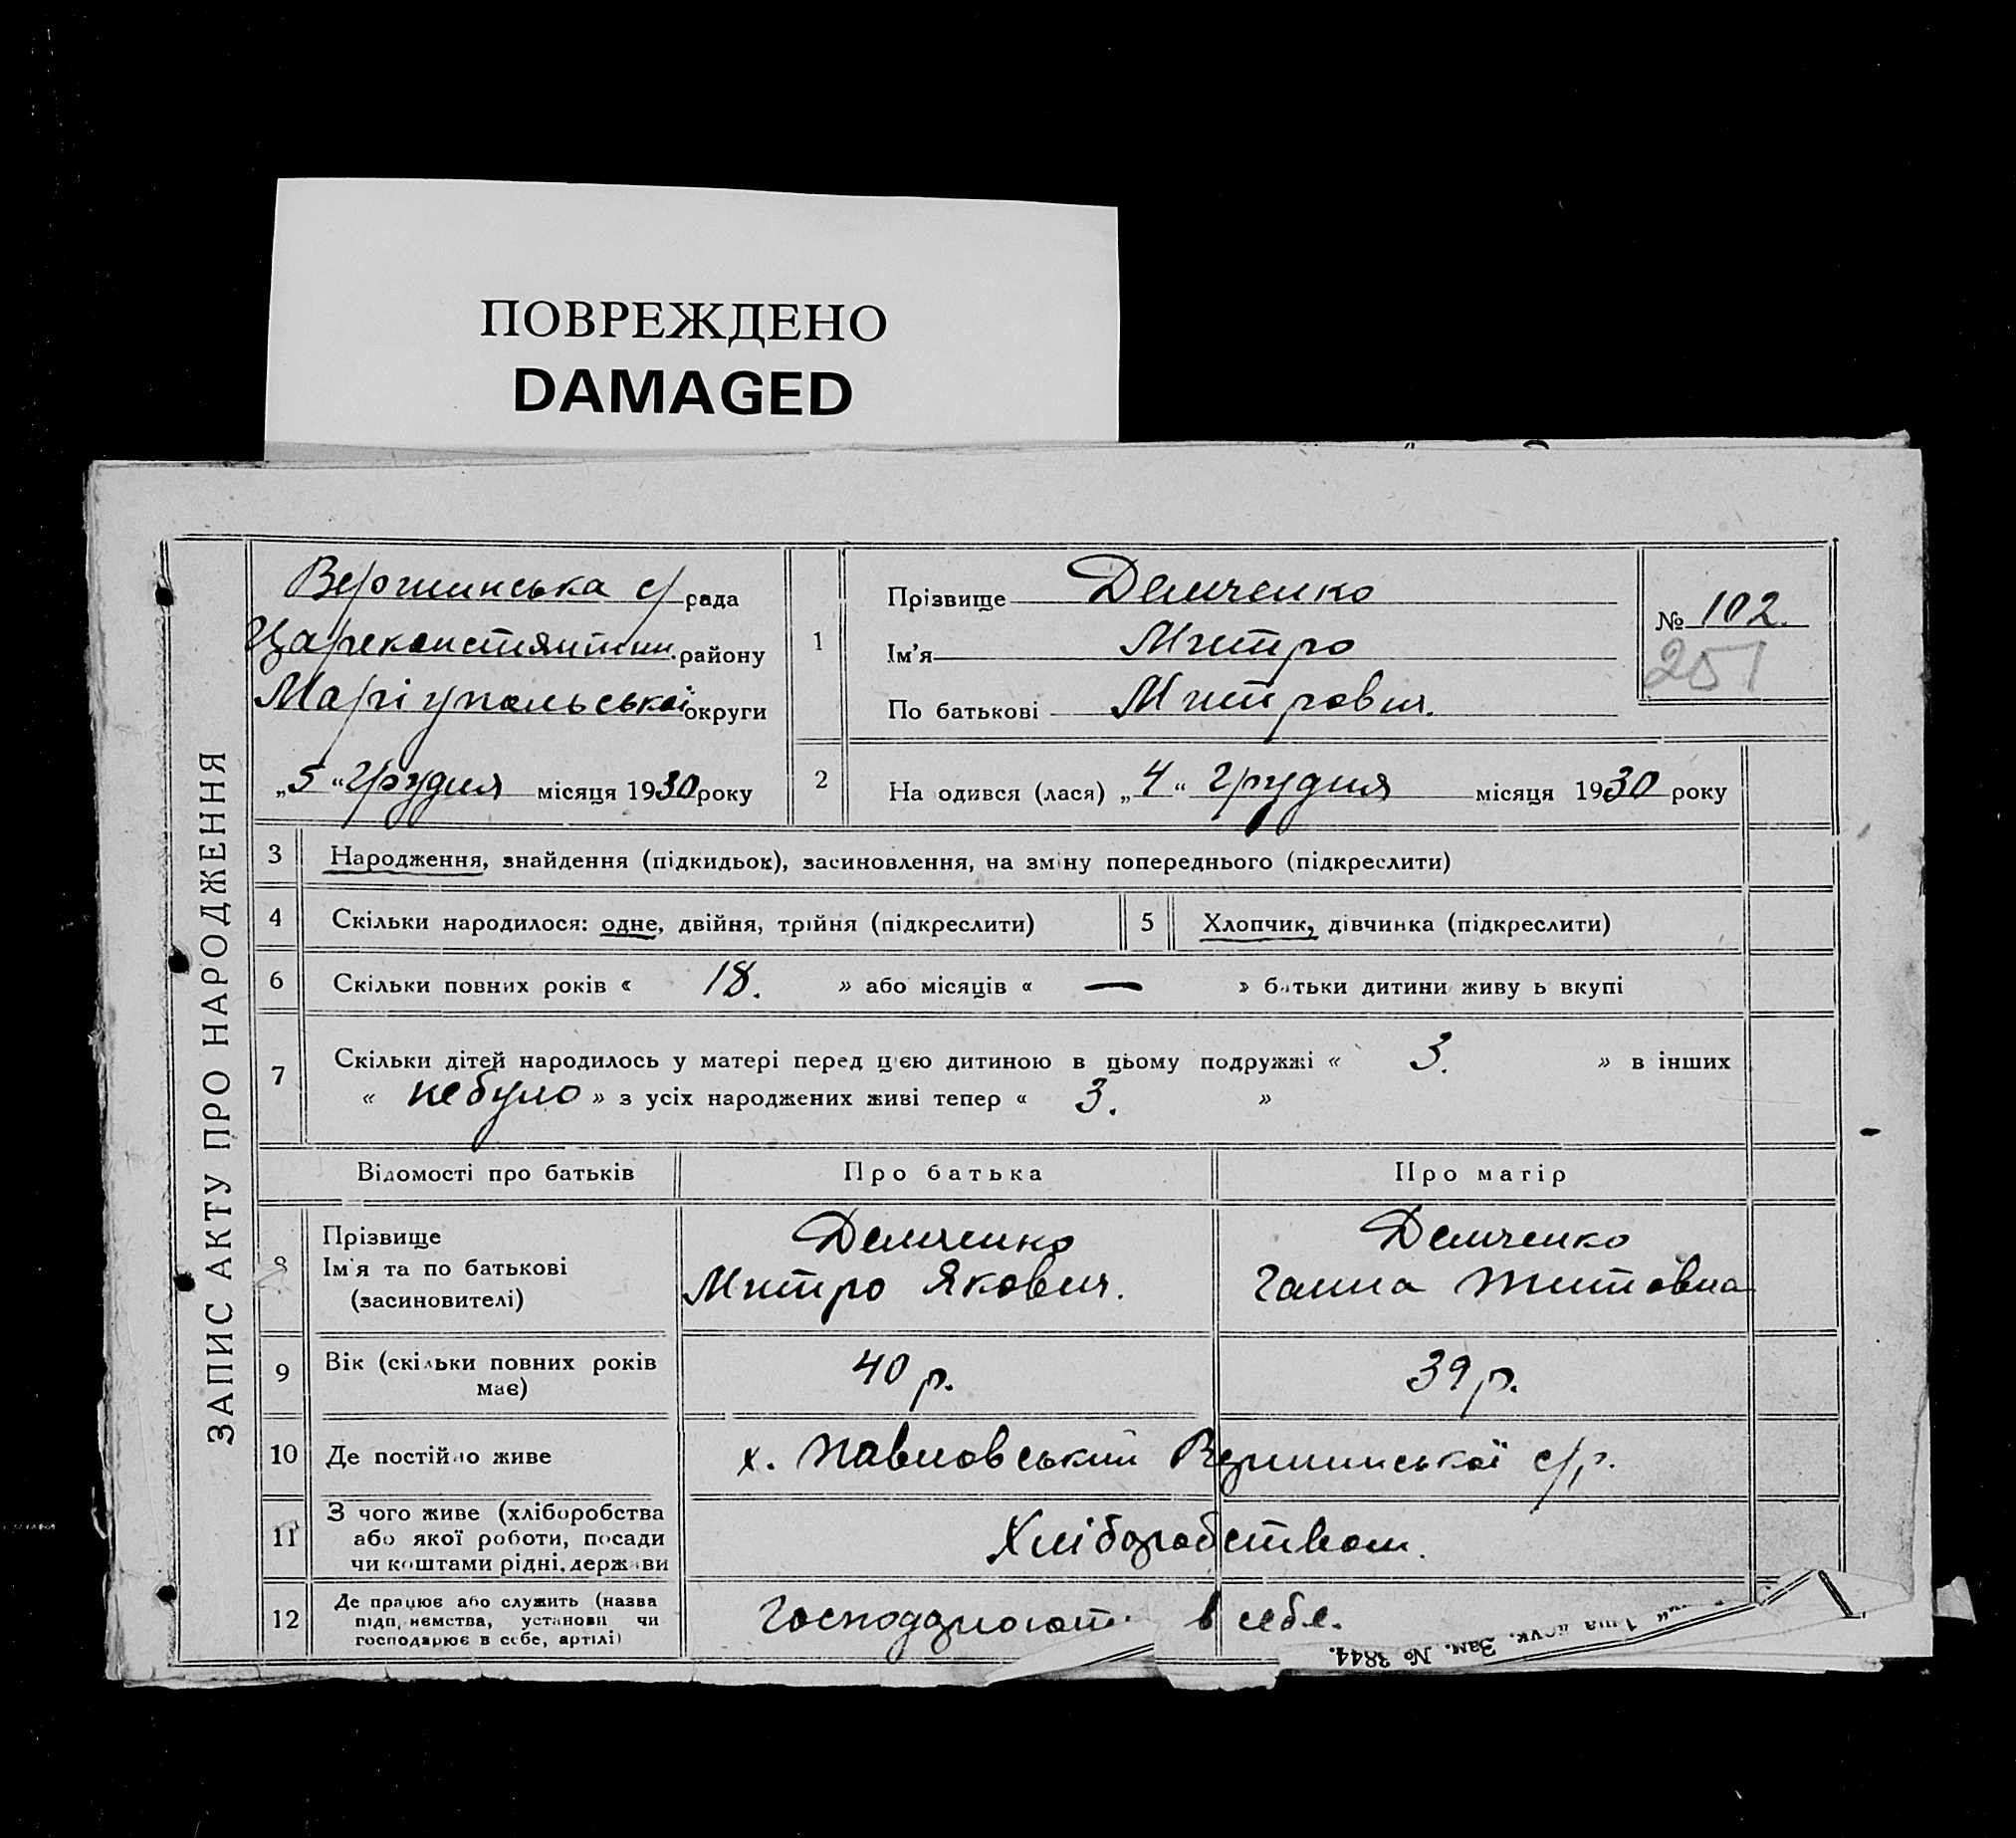 ПОВРЕЖДЕНО
DAMAGED
ЗАПИС АКТУ ПРО НАРОДЖЕННЯ
Вершинська с/рада
Цареконстянтин. району
Маріупольської округи
„5“ Грудня місяця 1930 року
1
Прізвище Демченко
Ім'я Митро
По батькові Митрович.
№ 102.
251
2
На одився (лася) „4“ Грудня місяця 1930 року
3 Народження, знайдення (підкидьок), засиновлення, на зміну попереднього (підкреслити)
4 Скільки народилося: одне, двійня, трійня (підкреслити) 5 Хлопчик, дівчинка (підкреслити)
6 Скільки повних років « 18. » або місяців « — » батьки дитини живу ь вкупі
7 Скільки дітей народилось у матері перед цією дитиною в цьому подружжі « 3. » в інших
« небуло » з усіх народжених живі тепер « 3. »
Відомості про батьків Про батька Про матір
8 Прізвище Демченко Демченко
Ім'я та по батькові Митро Якович. Ганна Титовна
(засиновителі)
9 Вік (скільки повних років 40 р. 39 р.
має)
10 Де постійно живе х. Павловський Вершинської с/р.
11 З чого живе (хліборобства
або якої роботи, посади Хліборобством.
чи коштами рідні, держави
12 Де працює або служить (назва
підприємства, установи чи Господарюють в себе.
господарює в себе, артілі)
Зам. № 3844.